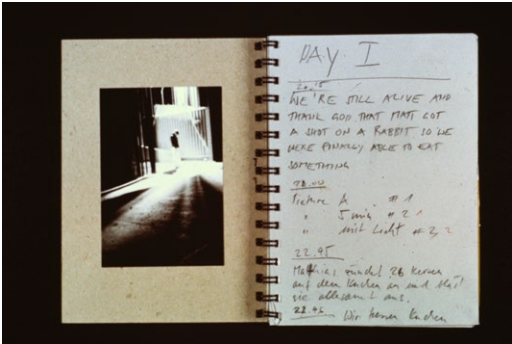 DAY I
20.15
WE'RE STILL ALIVE AND
THANK GOD THAT MATT GOT
A SHOT ON A RABBIT SO WE
WERE FINALLY ABLE TO EAT
SOMETHING
22.00
Picture A # 1
" 5 min # 2
" mit Licht # 3, 2
22.45
Matthias zündet 26 Kerzen
auf dem Kuchen an und bläst
sie allesamt aus.
22.45 Wir Kuchen